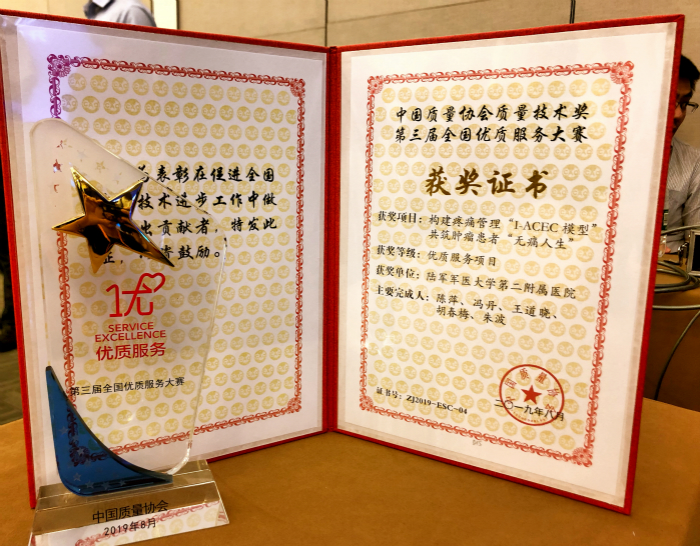 为表彰在促进全国
技术进步工作中做
出贡献者,特发此
证,
鼓励。
优
SERVICE
EXCELLENCE
优质服务
第三届全国优质服务大赛
中国质量协会
2019年8月
中国质量协会质量技术奖
第三届全国优质服务大赛
获奖证书
获奖项目:构建疼痛管理“I-ACEC 模型”
共筑肿瘤患者“无痛人生”
获奖等级:优质服务项目
获奖单位:陆军军医大学第二附属医院
主要完成人:陈萍、冯丹、王道晓、
胡春梅、朱波
证书号:ZJ2019-ESC-04
二〇一九年八月